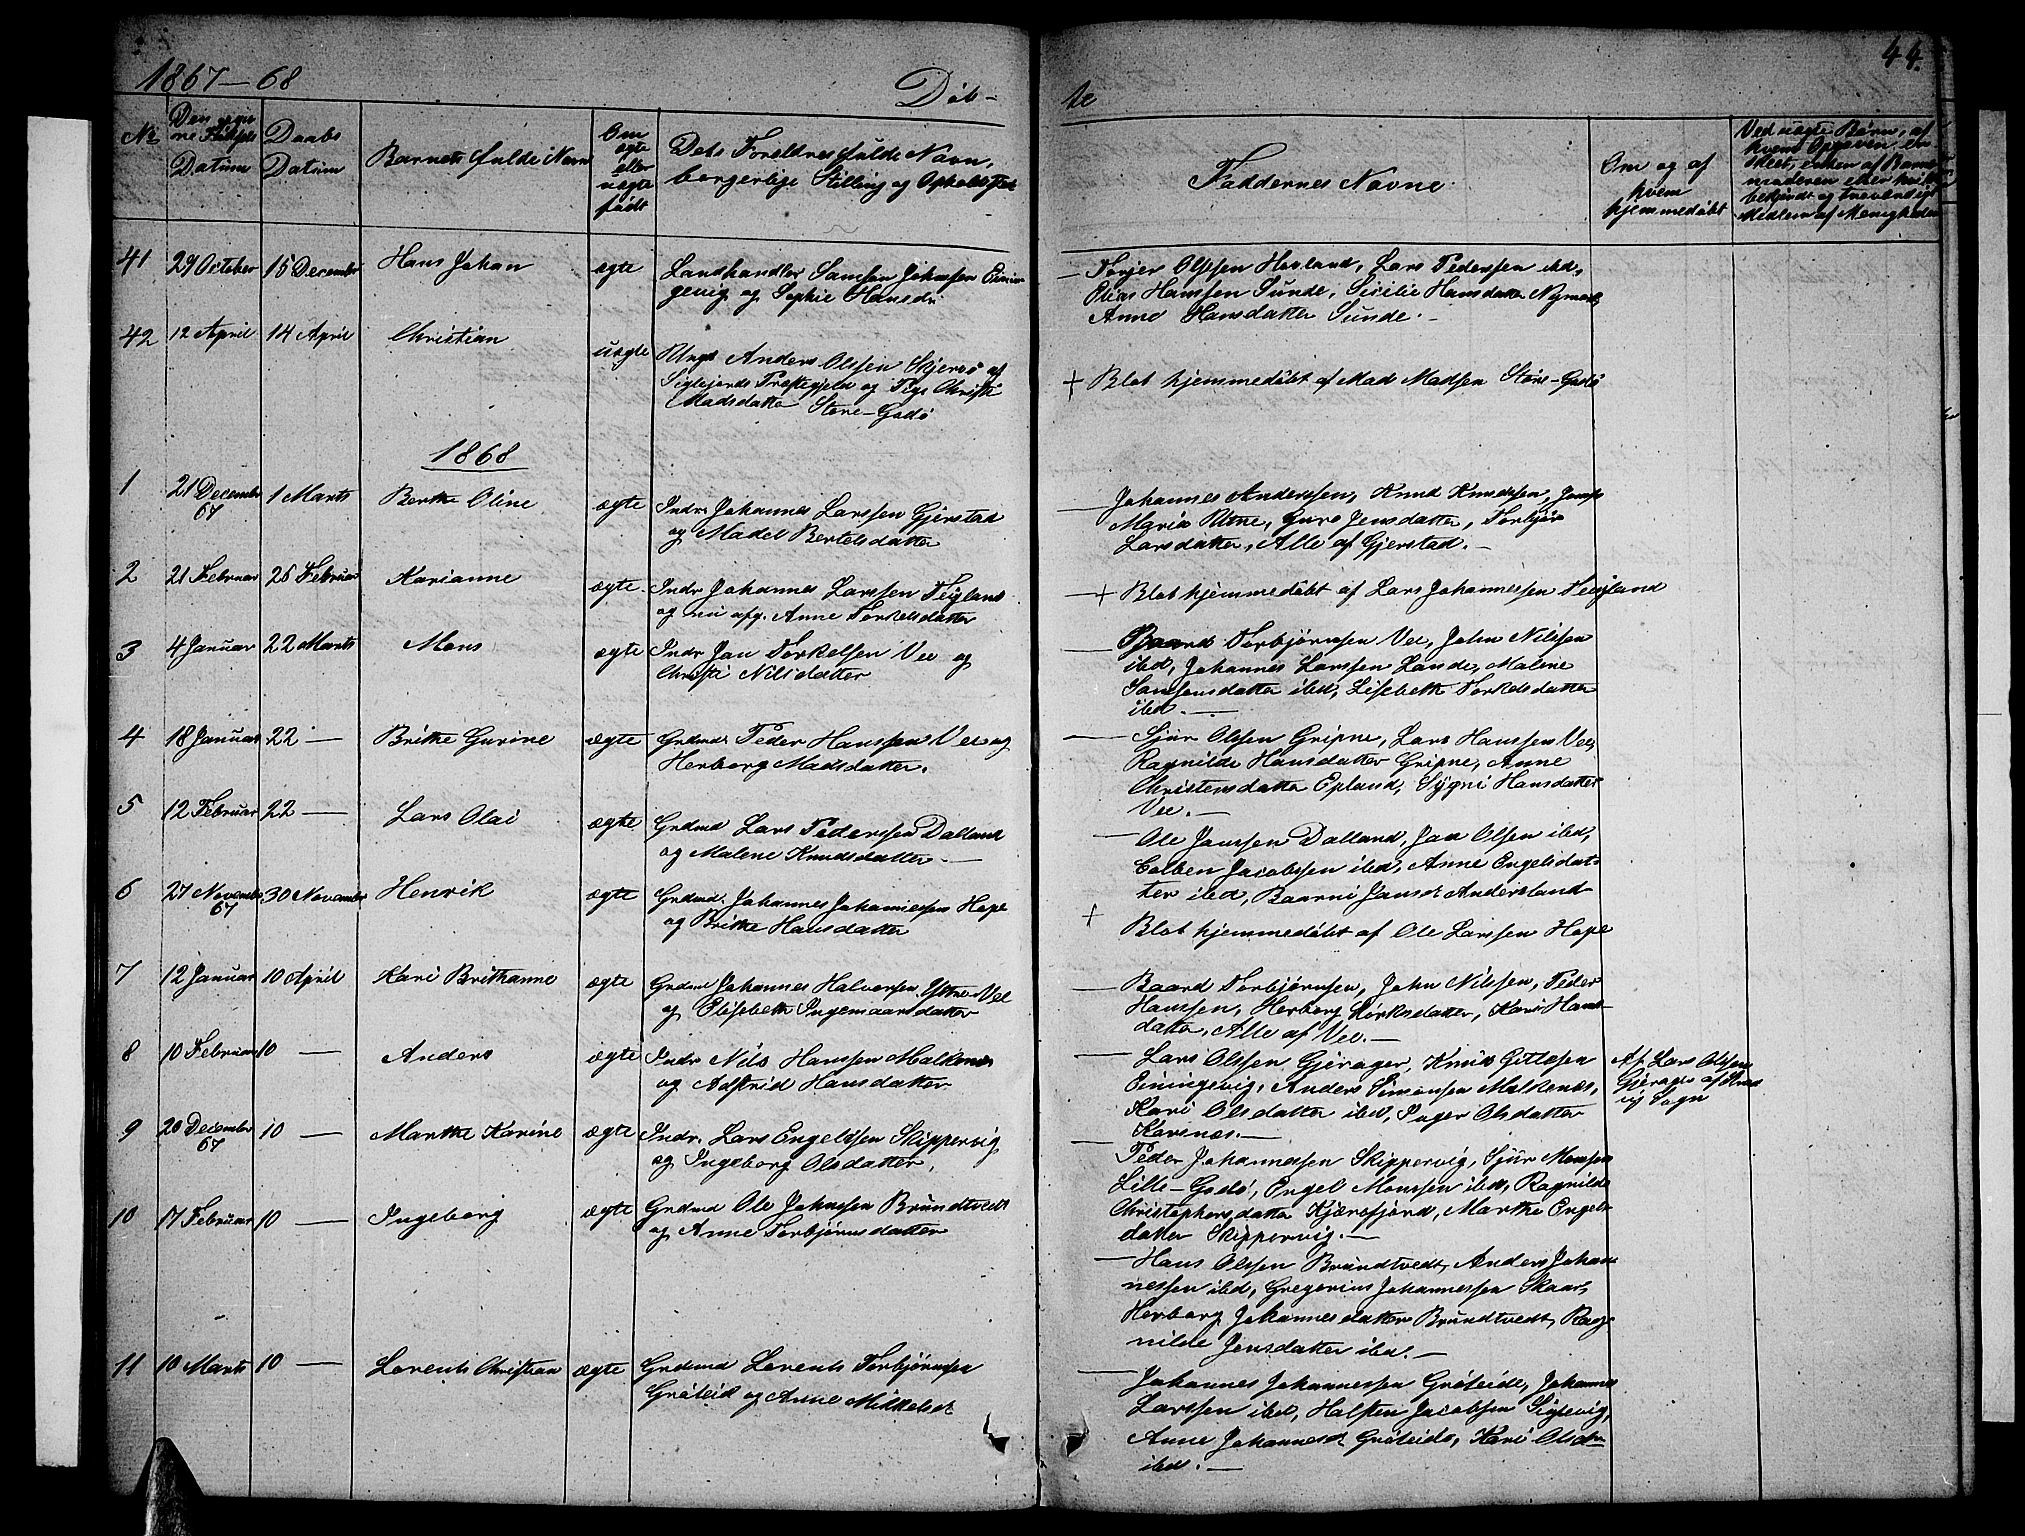 44.
1867–68
Døb-
te
No
Daabs
Datum
Datum
Barnets fulde Navn
Om
ægte
eller
uægte
født
Dets Forældres fulde Navn,
borgerlige Stilling og Opholdssted
Faddernes Navne.
Om og af
hvem
hjemmedøbt
Ved uægte Børn, af
41 29 October 15 December Hans Johan ægte Landhandler Samson Johnssen Einin-
gevig og Sophie Hansdr.
— Torjer Olssen Hovland, Lars Pederssen ibd,
Elias Hanssen Sunde, Sicilie Hansdatter
Anne Hansdatter Sunde. —
42 12 April 14 April Christian uægte Ungk Anders Olssen Skjersø af
Præstegjeld og Pige Christi
Madsdatter Store-Godø
+ Blot hjemmedøbt af Mad Madsen Store-Godø
1868
1 21 December 67 1 Marts Berthe Oline ægte Indr. Johannes Larssen Gjerstad
og Madel Bertelsdatter
— Johannes Anderssen, Knud Knudssen,
Maria Utne, Guro Jensdatter, Torbjør
Larsdatter, Alle af Gjerstad. —
2 21 Februar 26 Februar Karianne ægte. Indr Johannes Larssen Teigland
og nu afg. Anne Torkelsdatter
— + Blot hjemmedøbt af Lars Johannessen Teigland
3 4 Januar 22 Marts Mons ægte Indr Jan Torkelsen Vee og
Christi Nilsdatter
— Baard Torbjørnssen Vee, John Nilssen
ibd, Johannes Larssen Lande, Malene
Samsonsdatter ibd, Lisbeth Torkelsdatter
ibd. —
4 18 Januar 22 — Brithe Gurine ægte Grdmd. Peder Hanssen Vee og
Herborg Madsdatter.
— Sjur Olssen Gripne, Lars Hanssen Vee,
Ragnilde Hansdatter Gripne, Anne
Christensdatter Epland, Sygni Hansdatter
Vee. —
5 12 Februar 22 — Lars Olai ægte Grdmd Lars Pederssen Dalland
og Malene Knudsdatter. —
— Ole Janssen Dalland, Jan Olsen ibd,
Colben Jacobssen ibd, Anne Engelsdat-
ter ibd, Baarni Jansdr Andersland-
6 27 November 67 30 November Henrik ægte Grdmd. Johannes Johannessen Hope
og Brithe Hansdatter
+ Blot hjemmedøbt af Ole Larssen Hope
7 12 Januar 10 April Kari Brithanne ægte Grdmd Johannes Halversen Ytre-Vee
og Elisebeth Ingemaarsdatter
— Baard Torbjørnsen, John Nilssen, Peder
Hanssen, Herborg datter, Kari Hans-
datter, Alle af Vee. —
8 10 Februar 10 — Anders ægte Indr Nils Hanssen Malkenes
og Adstrid Hansdatter
— Lars Olssen Gjerager, Knud Gitlesen
Einingevig, Anders Simonsen Malkenes,
Kari Olsdatter ibd, Inger Olsdatter
Korsnæs. —
Af Lars Olssen
Gjerager af
Sogn
9 20 December 67 10 — Marthe Karine ægte Indr. Lars Engelssen Skippervig
og Ingeborg Olsdatter,
— Peder Johannessen Skippervig, Sjur Monsen
Lille-Godø, Engel Monssen ibd, Ragnilde
Christophersdatter Kjærsfjord, Marthe Engels-
datter Skippervig. —
10 17 Februar 10 — Ingeborg ægte Grdmd Ole Johnssen Brundtvedt
og Anne Torbjørnsdatter
— Hans Olssen Brundtvedt, Anders Johan-
nessen ibd, Gregorius Johannessen Skaar,
Herborg Johannesdatter Brundtvedt, Rag-
nilde Jensdatter ibd. —
11 10 Marts 10 — Lorents Christian ægte Grdmd Lorents Torbjørnsen
Grøteid og Anne Mikkelsd.
— Johannes Johannessen Grøteide, Johannes
Larssen ibd, Halsten Jacobssen Siglevig,
Anne Johannesd Grøteide, Kari Olsdr
ibd. —